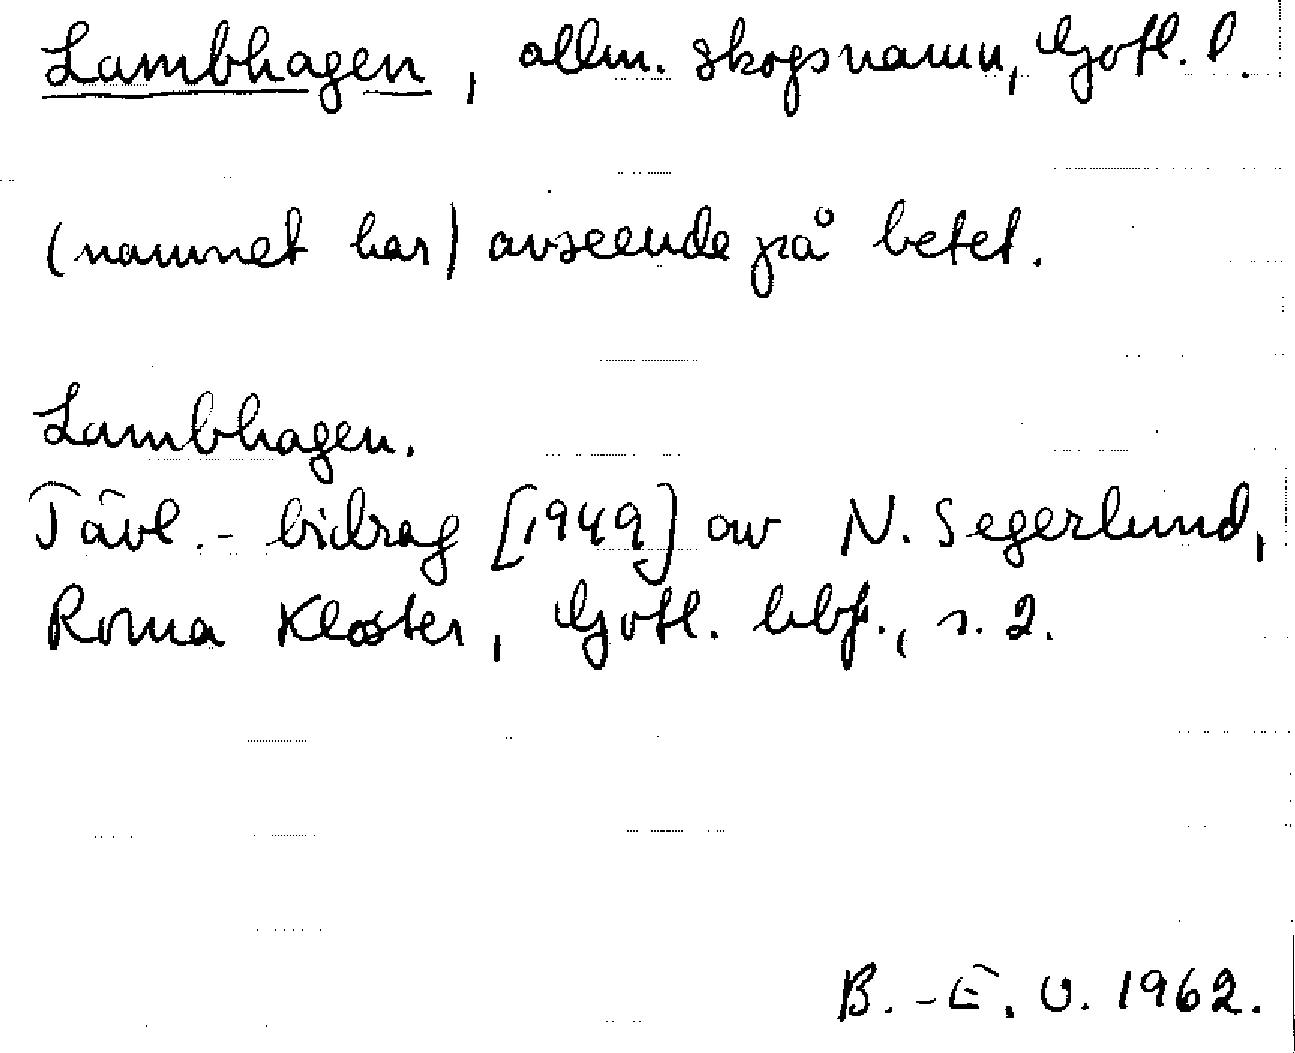 Lambhagen, allm. skogsnamn, Gotl. l.
(namnet har) avseende på betet.
Lambhagen.
Tävl.-bidrag [1949] av N. Segerlund,
Roma Kloster, Gotl. bbf., s. 2.
B.-E. O. 1962.